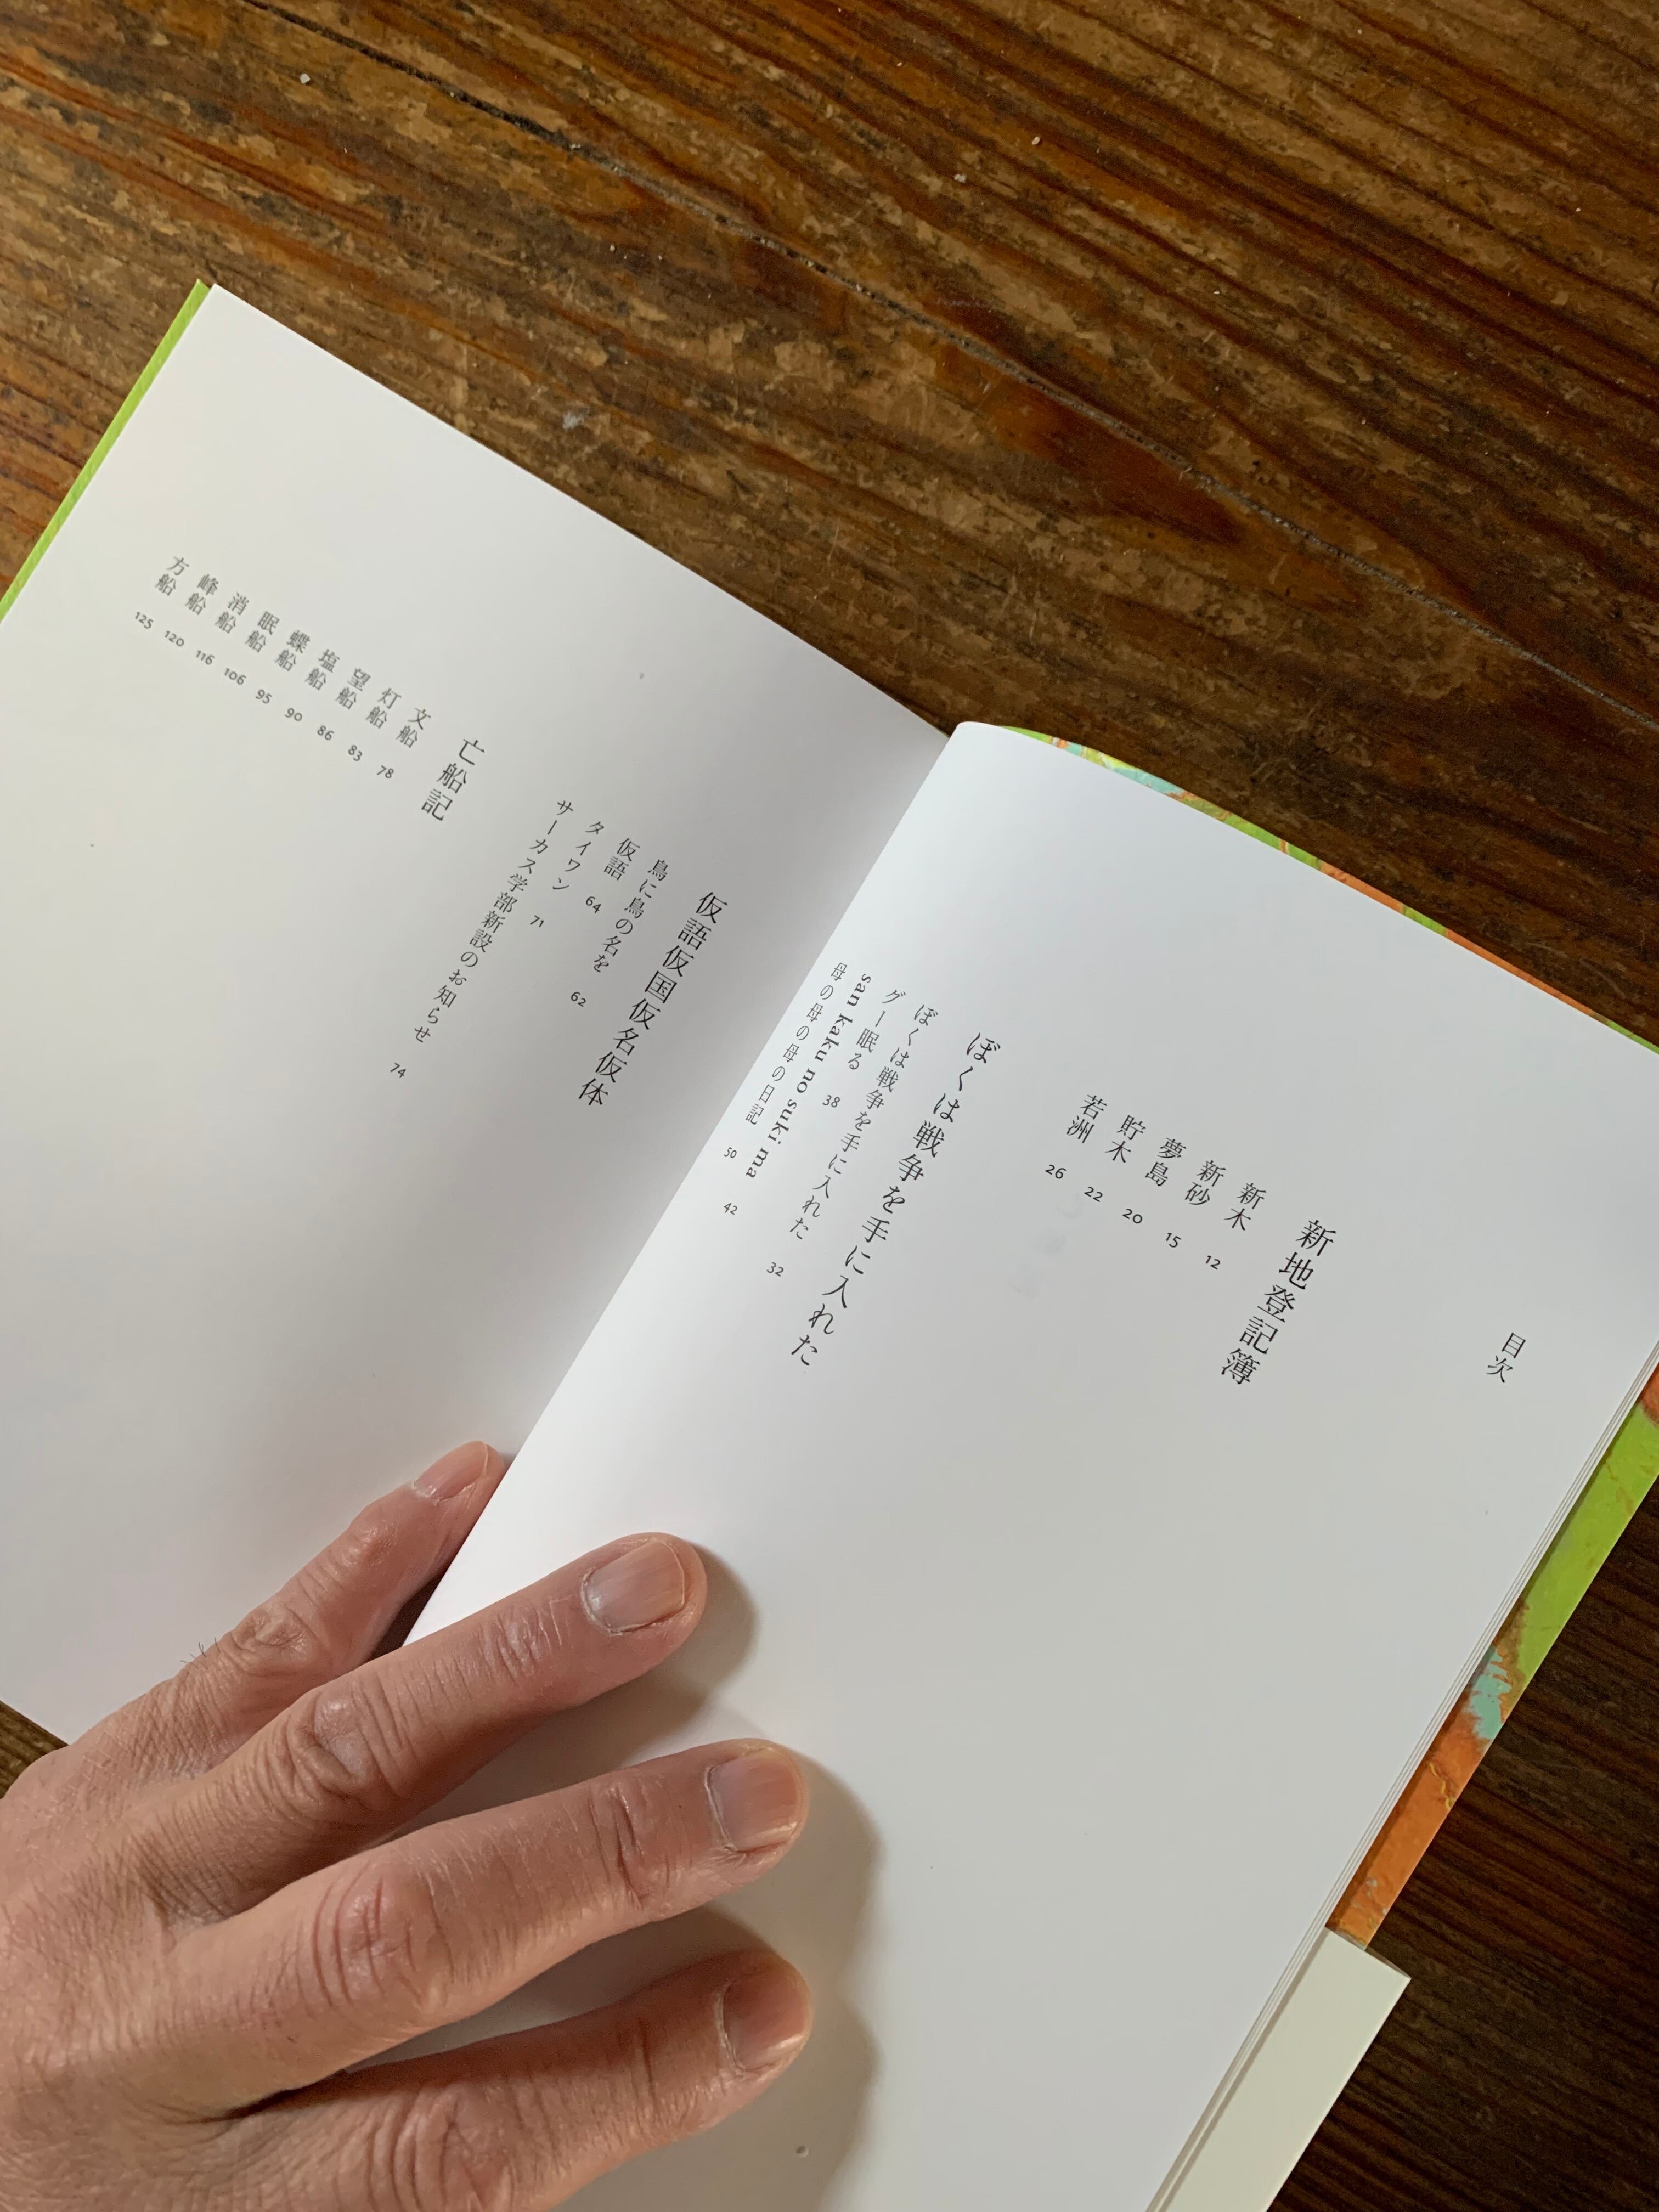 目次
新地登記簿
新木 12
新砂 15
夢島 20
貯木 22
若洲 26
ぼくは戦争を手に入れた
ぼくは戦争を手に入れた 32
グー眠る 38
san kaku no suki ma 42
母の母の母の母の日記 50
仮語仮国仮名仮体
鳥に鳥の名を 62
仮語 64
タイワン 71
サーカス学部新設のお知らせ 74
亡船記
文船 78
灯船 83
望船 86
塩船 90
蝶船 95
眠船 106
消船 116
峰船 120
方船 125